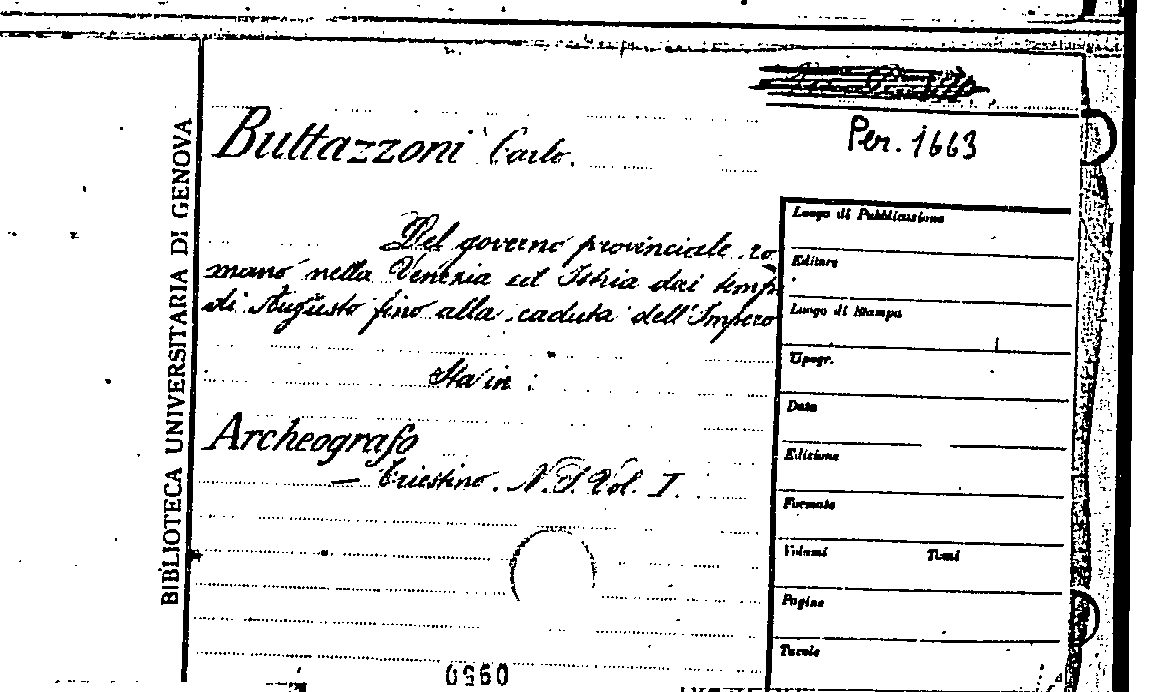 BIBLIOTECA UNIVERSITARIA DI GENOVA
Per. 1663
Buttazzoni Carlo.
Del governo provinciale ro
mano nella Venezia ed Istria dai temp
di Augusto fino alla caduta dell'Impero
Sta in :
Archeografo
— Triestino. N.S. Vol. I.
0950
Luogo di Pubblicazione
Editore
Luogo di Stampa
Tipogr.
Data
Edizione
Formato
Volumi Tomi
Pagine
Tavole